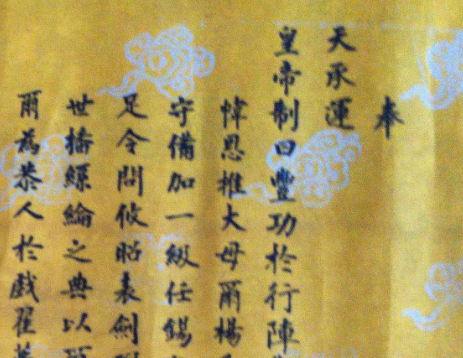 奉
天承運
皇帝制曰豐功於行陣
恩推大母爾楊
守備加一級任錫
足令問攸昭表劍
世播綸之典以
爾為恭人於戲翟